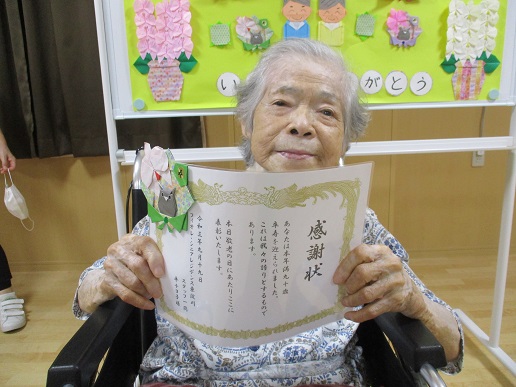 い
がとう
感謝状
あなたは本年満九十歳
卒寿を迎えられました。
これは我々の誇りとするもので
あります。
本日敬老の日にあたりここに
表彰いたします。
令和三年九月十九日